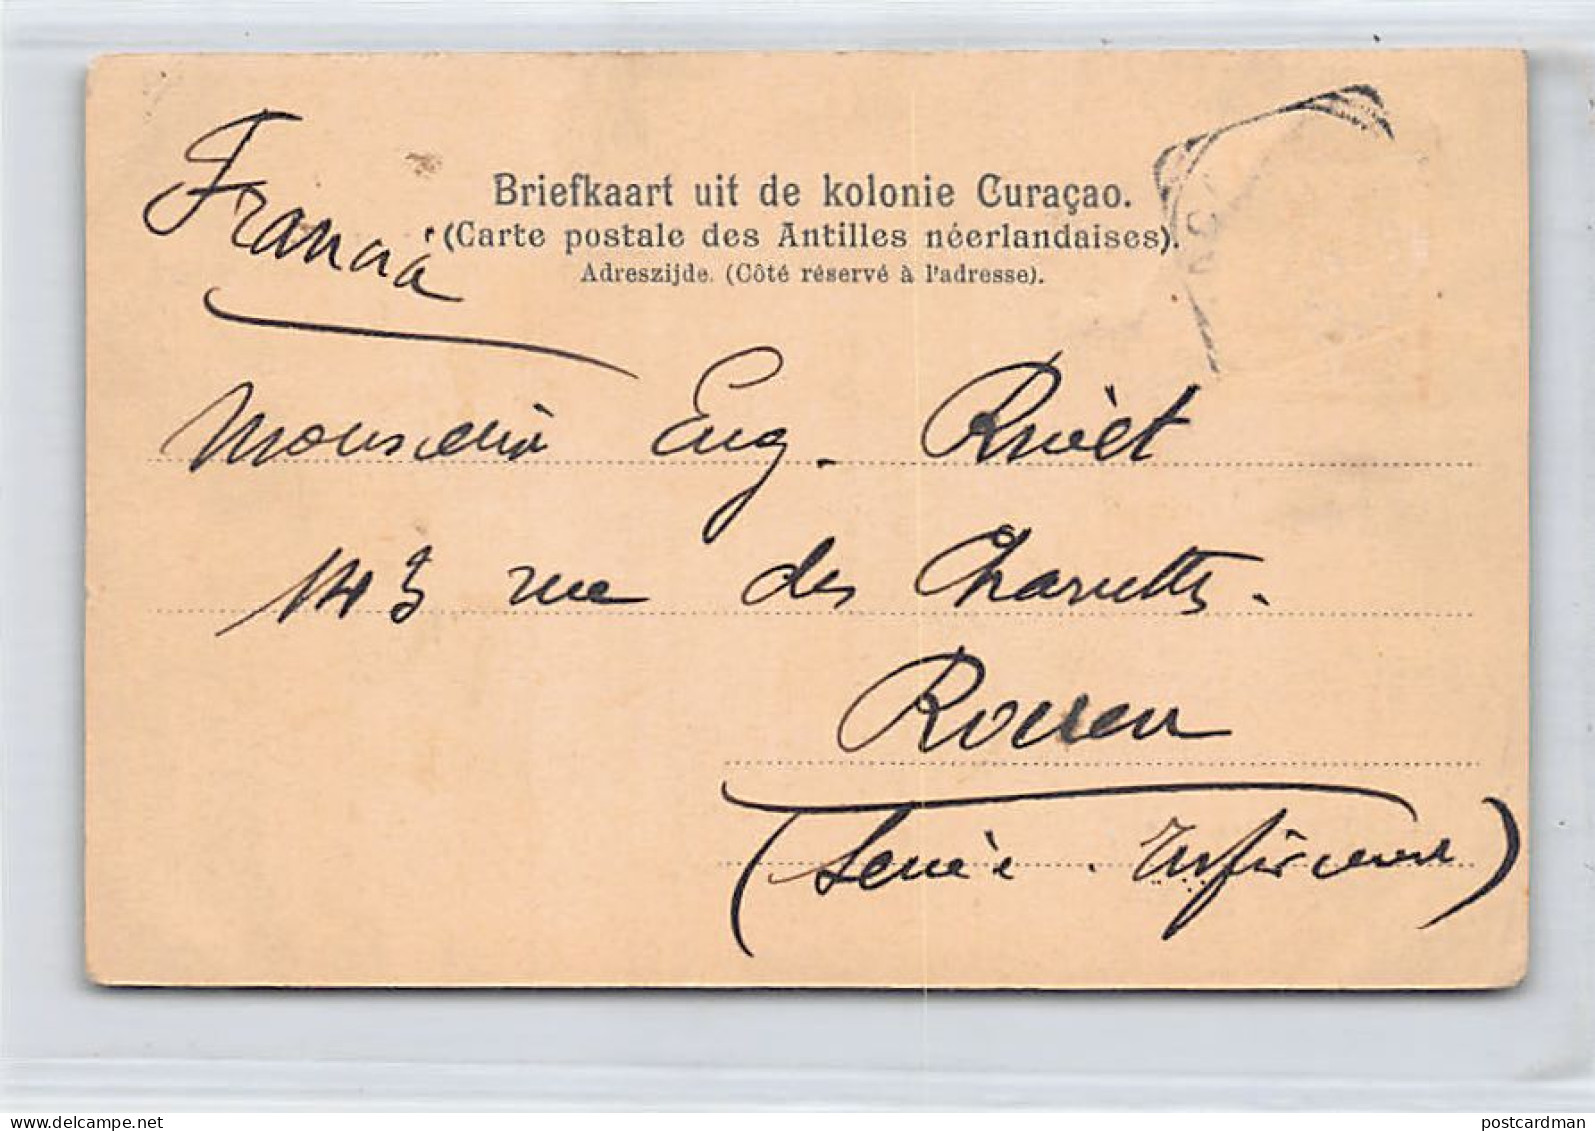 Francia
Briefkaart uit de kolonie Curaçao.
(Carte postale des Antilles néerlandaises).
Adreszijde. (Côté réservé à l'adresse).
Monsieur Eug. Rivièt
143 rue des Charettes.
Rouen
(Seine. Inférieure)
www.delcampe.net
postcardman